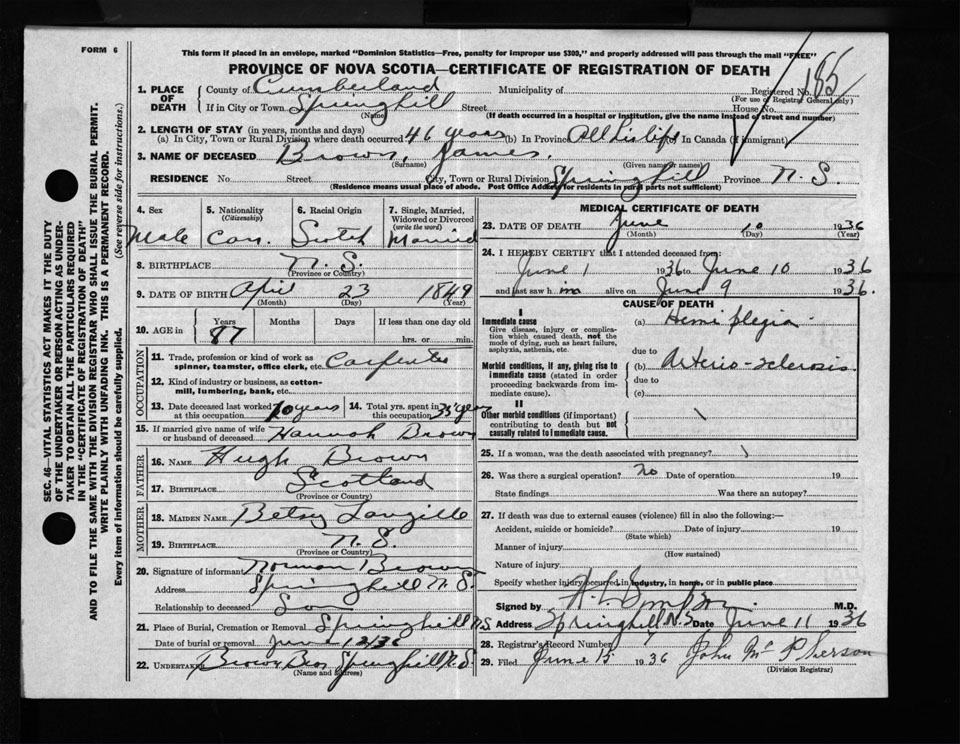 FORM 6
This form if placed in an envelope, marked "Dominion Statistics—Free, penalty for improper use $300," and properly addressed will pass through the mail "FREE"
PROVINCE OF NOVA SCOTIA—CERTIFICATE OF REGISTRATION OF DEATH
1. PLACE OF DEATH County of Cumberland Municipality of Registered No. 185
(For use of Registrar General only)
If in City or Town Springhill Street House No.
(Name) (If death occurred in a hospital or institution, give the name instead of street and number)
2. LENGTH OF STAY (in years, months and days)
(a) In City, Town or Rural Division where death occurred 46 years (b) In Province All his life (c) In Canada (if immigrant)
3. NAME OF DECEASED Brown, James.
(Surname) (Given name or names)
RESIDENCE No. Street City, Town or Rural Division Springhill Province N. S.
(Residence means usual place of abode. Post Office Address for residents in rural parts not sufficient)
4. Sex Male
5. Nationality (Citizenship) Can.
6. Racial Origin Scotch
7. Single, Married, Widowed or Divorced (write the word) Married
8. BIRTHPLACE N. S.
(Province or Country)
9. DATE OF BIRTH April 23 1849
(Month) (Day) (Year)
10. AGE in Years Months Days If less than one day old
87 hrs. or min.
OCCUPATION
11. Trade, profession or kind of work as spinner, teamster, office clerk, etc. Carpenter
12. Kind of industry or business, as cotton-mill, lumbering, bank, etc.
13. Date deceased last worked at this occupation 10 years
14. Total yrs. spent in this occupation 35 years
15. If married give name of wife or husband of deceased Hannah Brown
FATHER
16. NAME Hugh Brown
17. BIRTHPLACE Scotland
(Province or Country)
MOTHER
18. MAIDEN NAME Betsy Langille
19. BIRTHPLACE N. S.
(Province or Country)
20. Signature of informant Norman Brown
Address Springhill N. S.
Relationship to deceased Son
21. Place of Burial, Cremation or Removal Springhill N S
Date of burial or removal June 12/36
22. UNDERTAKER Brown Bros Springhill N. S.
(Name and address)
MEDICAL CERTIFICATE OF DEATH
23. DATE OF DEATH June 10 1936
(Month) (Day) (Year)
24. I HEREBY CERTIFY that I attended deceased from:
June 1 1936 to June 10 1936
and last saw h im alive on June 9 1936.
CAUSE OF DEATH
I
Immediate cause (a) Hemiplegia
Give disease, injury or complication which caused death, not the mode of dying, such as heart failure, asphyxia, asthenia, etc.
due to
Morbid conditions, if any, giving rise to immediate cause (stated in order proceeding backwards from immediate cause).
(b) Arterio-sclerosis
due to
(c)
II
Other morbid conditions (if important) contributing to death but not causally related to immediate cause.
25. If a woman, was the death associated with pregnancy?
26. Was there a surgical operation? No Date of operation 19
State findings Was there an autopsy?
27. If death was due to external causes (violence) fill in also the following:—
Accident, suicide or homicide? Date of injury 19
(State which)
Manner of injury
(How sustained)
Nature of injury
Specify whether injury occurred in industry, in home, or in public place
Signed by Simpson M.D.
Address Springhill N.S Date June 11 1936
28. Registrar's Record Number
29. Filed June 15 1936 John McPherson
(Division Registrar)
SEC. 46—VITAL STATISTICS ACT MAKES IT THE DUTY
OF THE UNDERTAKER OR PERSON ACTING AS UNDER-
TAKER TO OBTAIN ALL THE PARTICULARS REQUIRED
IN THE "CERTIFICATE OF REGISTRATION OF DEATH"
AND TO FILE THE SAME WITH THE DIVISION REGISTRAR WHO SHALL ISSUE THE BURIAL PERMIT.
WRITE PLAINLY WITH UNFADING INK. THIS IS A PERMANENT RECORD.
Every item of information should be carefully supplied. (See reverse side for instructions.)